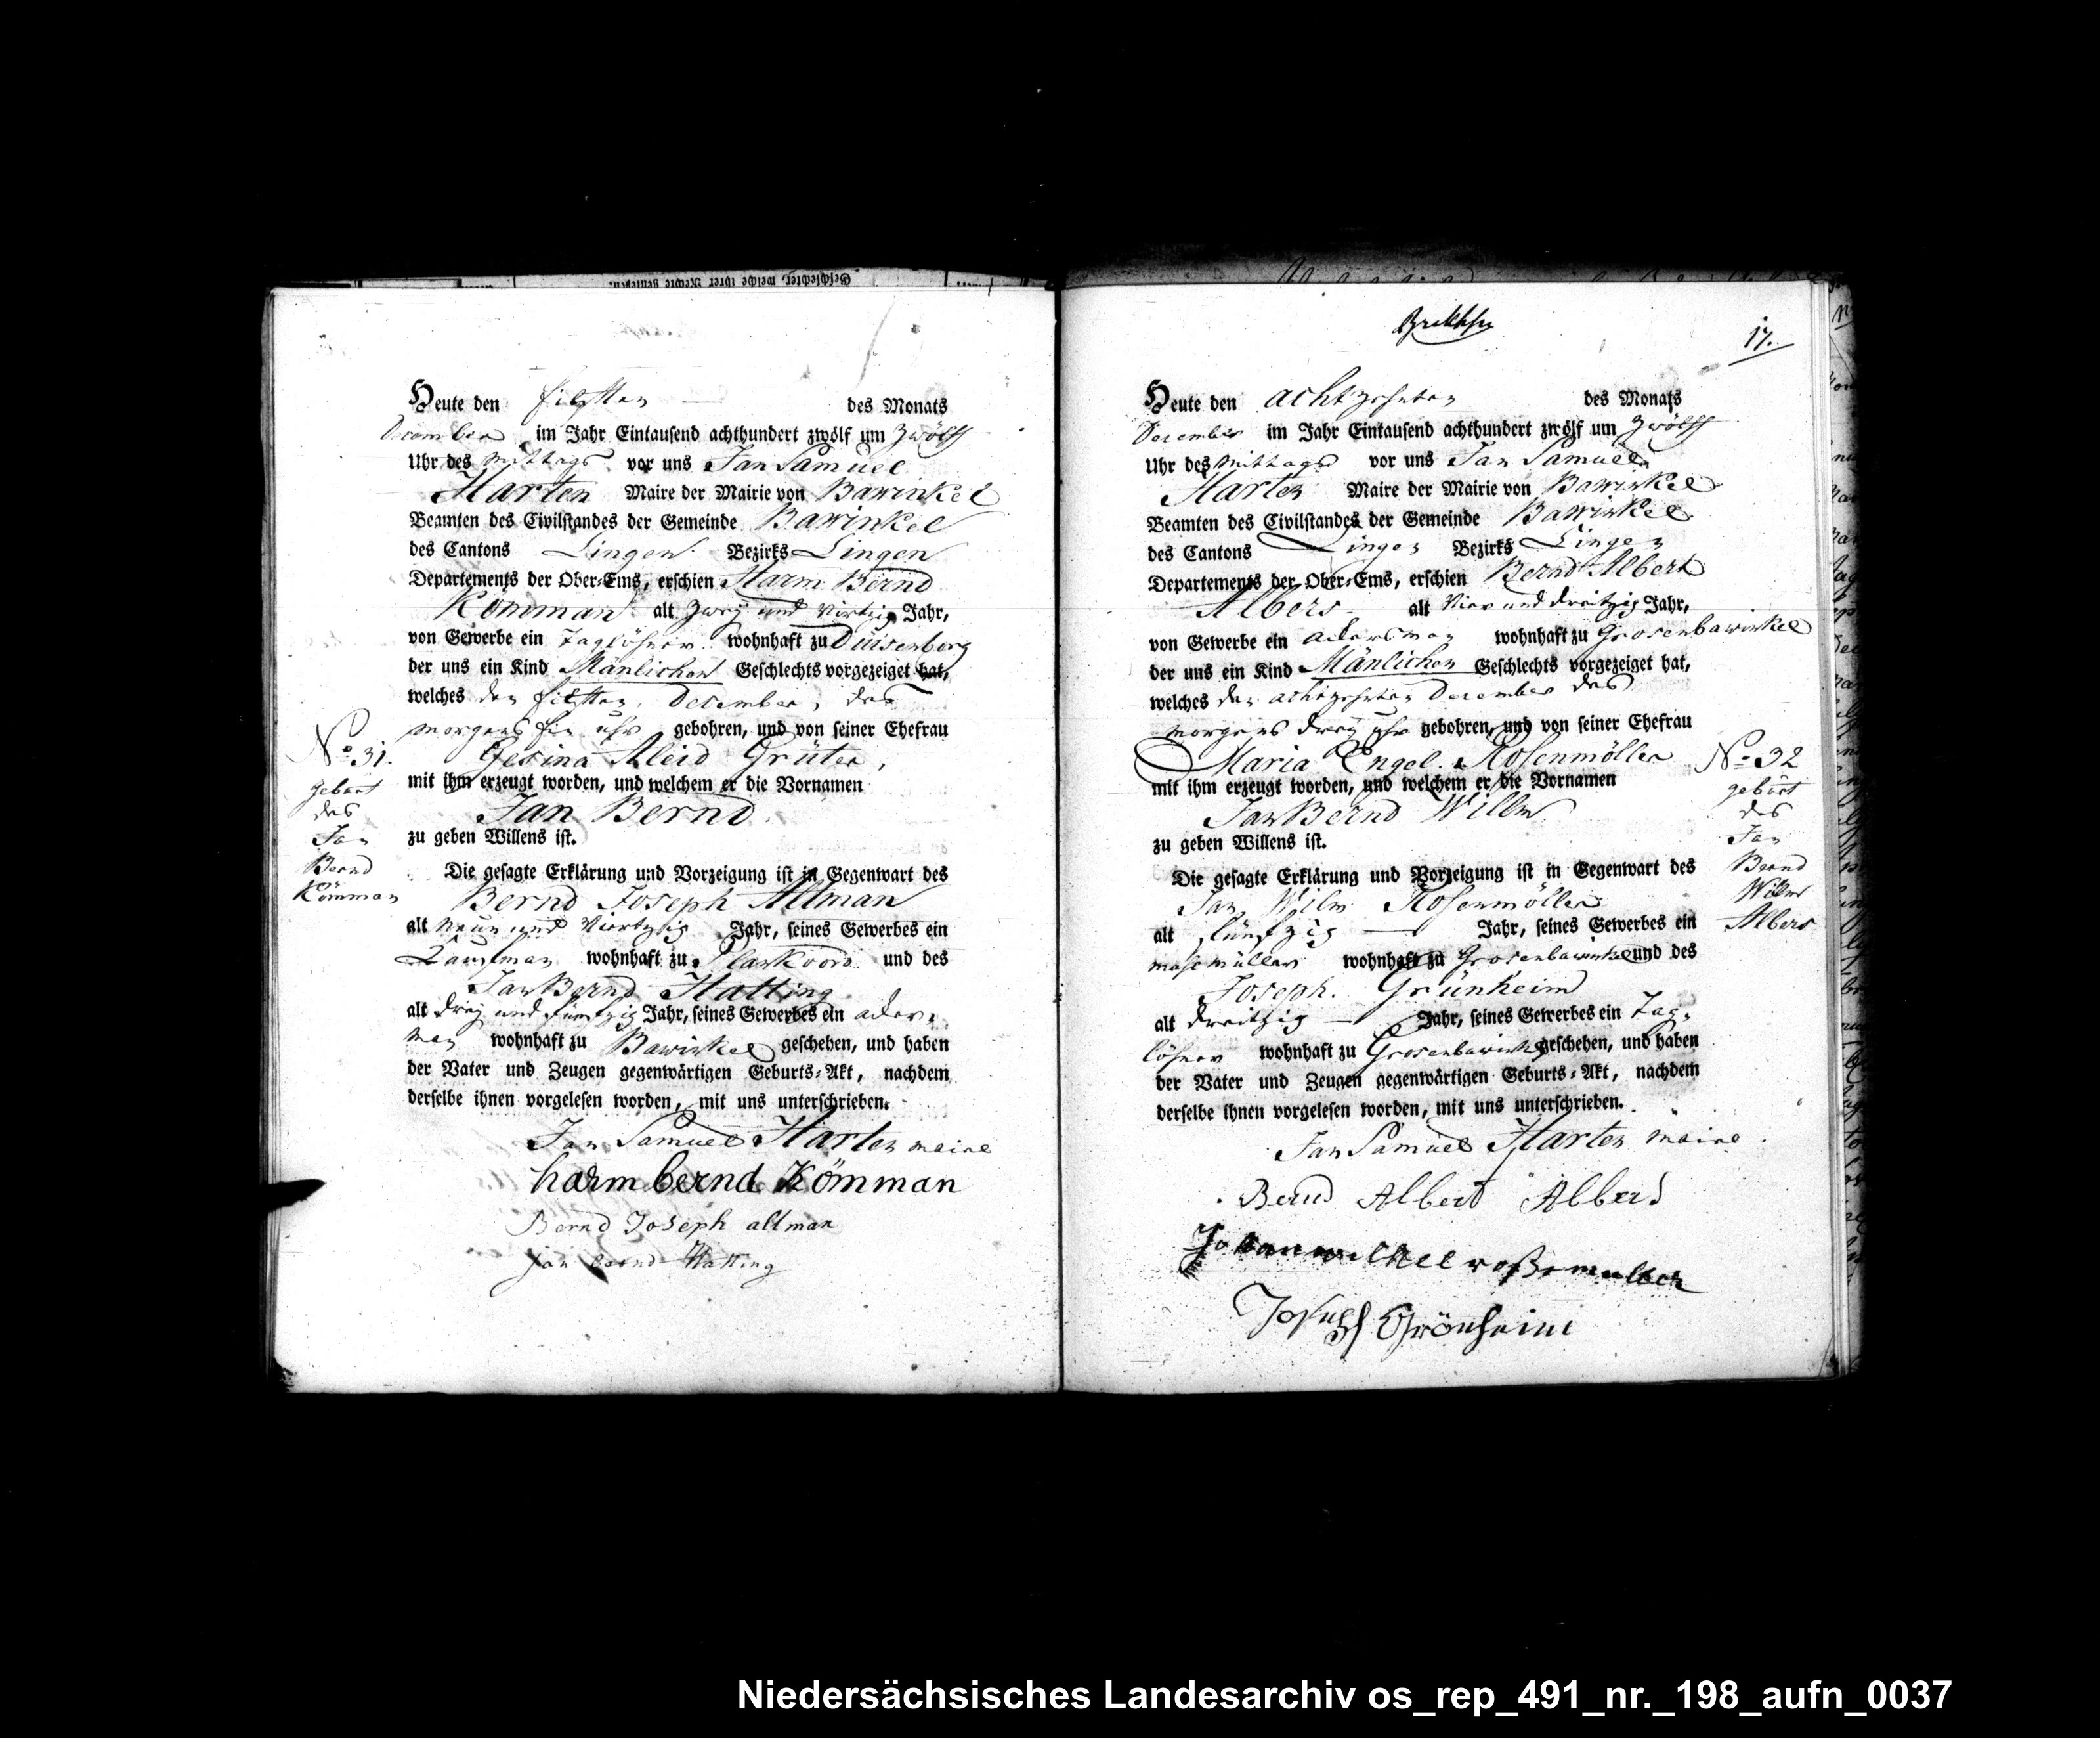 Heute den eilften — des Monats
December im Jahr Eintausend achthundert zwölf um Zwölff
Uhr des mittags vor uns Jan Samuel
Harten Maire der Mairie von Bawinkel
Beamten des Civilstandes der Gemeinde Bawinkel
des Cantons Lingen Bezirks Lingen
Departements der Ober-Ems, erschien Harm Bernd
Kömman alt Zwey und Viertzig Jahr,
von Gewerbe ein Taglöhner wohnhaft zu Duisenborg
der uns ein Kind Mänlichen Geschlechts vorgezeiget hat,
welches den eilften December, des
morgens ein uhr gebohren, und von seiner Ehefrau
Gesina Aleid Grüter,
mit ihm erzeugt worden, und welchem er die Vornamen
Jan Bernd
zu geben Willens ist.
Die gesagte Erklärung und Vorzeigung ist in Gegenwart des
Bernd Joseph Allman
alt Neun und Viertzig Jahr, seines Gewerbes ein
Kaufman wohnhaft zu und des
Jan Bernd Hatting
alt drey und fünfzig Jahr, seines Gewerbes ein acker-
man wohnhaft zu Bawinkel geschehen, und haben
der Vater und Zeugen gegenwärtigen Geburts-Akt, nachdem
derselbe ihnen vorgelesen worden, mit uns unterschrieben.
Jan Samuel Harten maire
harm bernd Kömman
Bernd Joseph allman
Jan bernd Hatting
No 31.
gebürt
des
Jan
Bernd
Kömman
17.
Heute den achtzehnten des Monats
December im Jahr Eintausend achthundert zwölf um Zwölff
Uhr des mittags vor uns Jan Samuel
Harten Maire der Mairie von Bawinkel
Beamten des Civilstandes der Gemeinde Bawinkel
des Cantons Lingen Bezirks Lingen
Departements der Ober-Ems, erschien Bernd Albert
Albers alt Vier und dreitzig Jahr,
von Gewerbe ein ackersman wohnhaft zu Grosenbawinkel
der uns ein Kind Mänlichen Geschlechts vorgezeiget hat,
welches den achtzehnten December des
morgens drey uhr gebohren, und von seiner Ehefrau
Maria Engel Rosenmöller
mit ihm erzeugt worden, und welchem er die Vornamen
Jan Bernd Willm
zu geben Willens ist.
Die gesagte Erklärung und Vorzeigung ist in Gegenwart des
Jan Wilm Rosenmöller
alt fünfzig — Jahr, seines Gewerbes ein
wohnhaft zu Grosenbawinkel und des
Joseph Grünheim
alt dreitzig — Jahr, seines Gewerbes ein Tag-
löhner wohnhaft zu Grosenbawinkel geschehen, und haben
der Vater und Zeugen gegenwärtigen Geburts-Akt, nachdem
derselbe ihnen vorgelesen worden, mit uns unterschrieben.
Jan Samuel Harten maire
Bernd Albert Albers
Joseph Grönheim
No 32
gebürt
des
Jan
Bernd
Willm
Albers
Niedersächsisches Landesarchiv os_rep_491_nr._198_aufn_0037